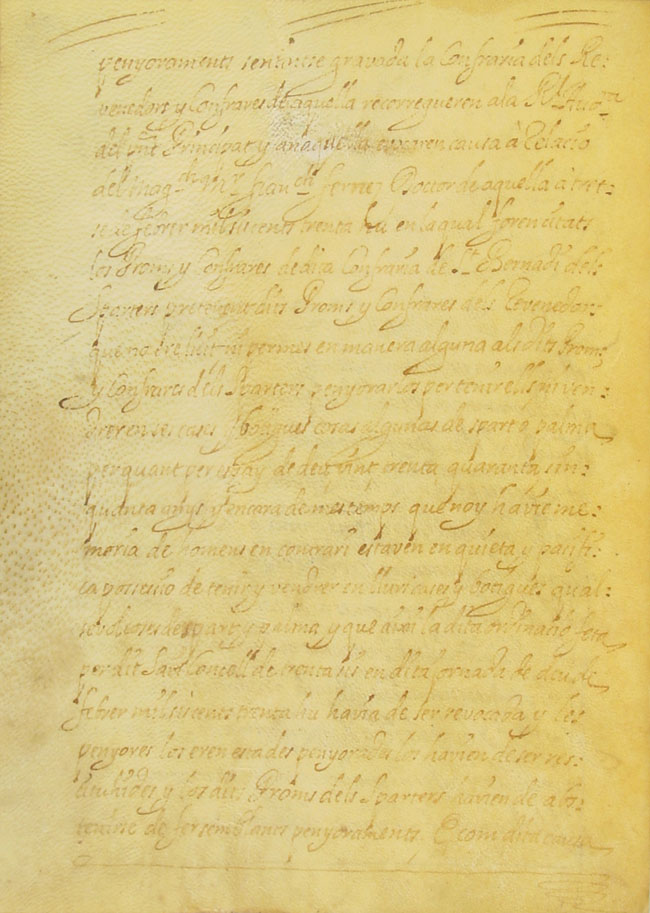 penyoraments sentintse gravada la Confraria dels Re:
venedors y Confrares de aquella recorregueren a la Rl. Aud.ª
del pnt Principat y en aquella causa à relació
del Mag.ch Mr. Fran.ch Ferrer Doctor de aquella à tret:
se de febrer mil siscents trenta hu en la qual foren citats
los Proms y Confrares de dita Confraria de St. Bernadi dels
Sparters pretenent dits Proms y Confrares dels Revenedors
que no ni permes en manera alguna als dits Proms
y Confrares dels Sparters penyorarlos per tenir ells ni ven:
drer en ses cases y botigues coses algunas de spart o palma
per quant per espay de deu vint trenta quaranta sin:
quanta anys y encara de mes temps que noy havie me:
moria de homens en contrari estaven en quieta y pacifi:
ca possessio de tenir y vendrer en llurs cases y botigues qual:
sevol coses de spart y palma y que axi la dita ordinatió feta
per dit Savi Concell de trenta sis en dita jornada de deu de
febrer mil siscents trenta hu havia de ser revocada y les
penyores los eren estades penyorades los havien de ser res:
tituhides y los dits Proms dels Sparters havien de abs:
tenirse de fer semblants penyoraments. E com dita causa